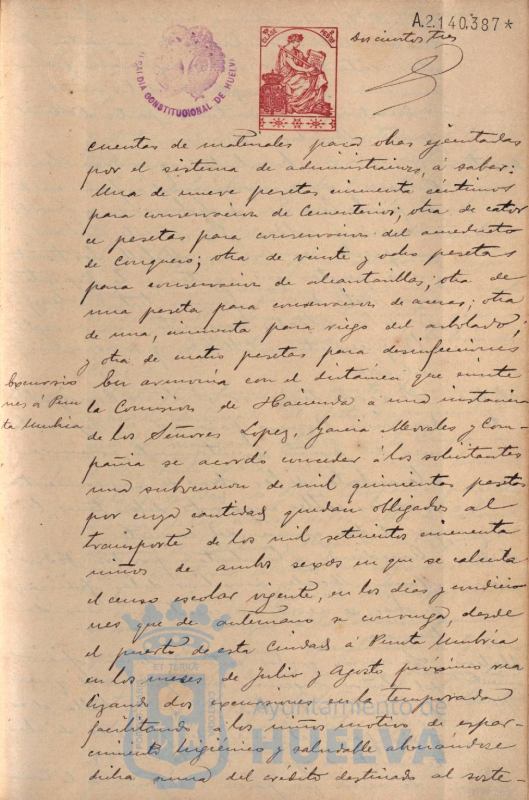 A.2.140.387*
Doscientos tres
ALCALDIA CONSTITUCIONAL DE HUELVA
cuentas de materiales para obras ejecutadas
por el sistema de administracion, á saber:
Una de nueve pesetas cincuenta centimos
para conservacion de Cementerios; otra de cator
ce pesetas para conservacion del acueducto
de Conquero; otra de veinte y ocho pesetas
para conservacion de alcantarillas; otra de
una peseta para conservacion de aceras; otra
de una, cincuenta para riego del arbolado;
y otra de cuatro pesetas para desinfecciones
Excursio
nes á Pun
ta Umbria
En armonia con el dictamen que emite
la Comision de Hacienda á una instancia
de los Señores Lopez, Garcia Morales y Com-
pañia se acordó conceder á los solicitantes
una subvencion de mil quinientas pesetas
por cuya cantidad quedan obligados al
transporte de los mil setecientos cincuenta
niños de ambos sexos en que se calcula
el censo escolar vigente, en los dias y condicio
nes que de antemano se convenga, desde
el puerto de esta Ciudad á Punta Umbria
en los meses de Julio y Agosto proximo rea
lizando dos excursiones en la temporada
facilitando á los niños motivo de espar-
cimiento higienico y saludable abonandose
dicha suma del crédito destinado al soste-
Ayuntamiento de
HUELVA